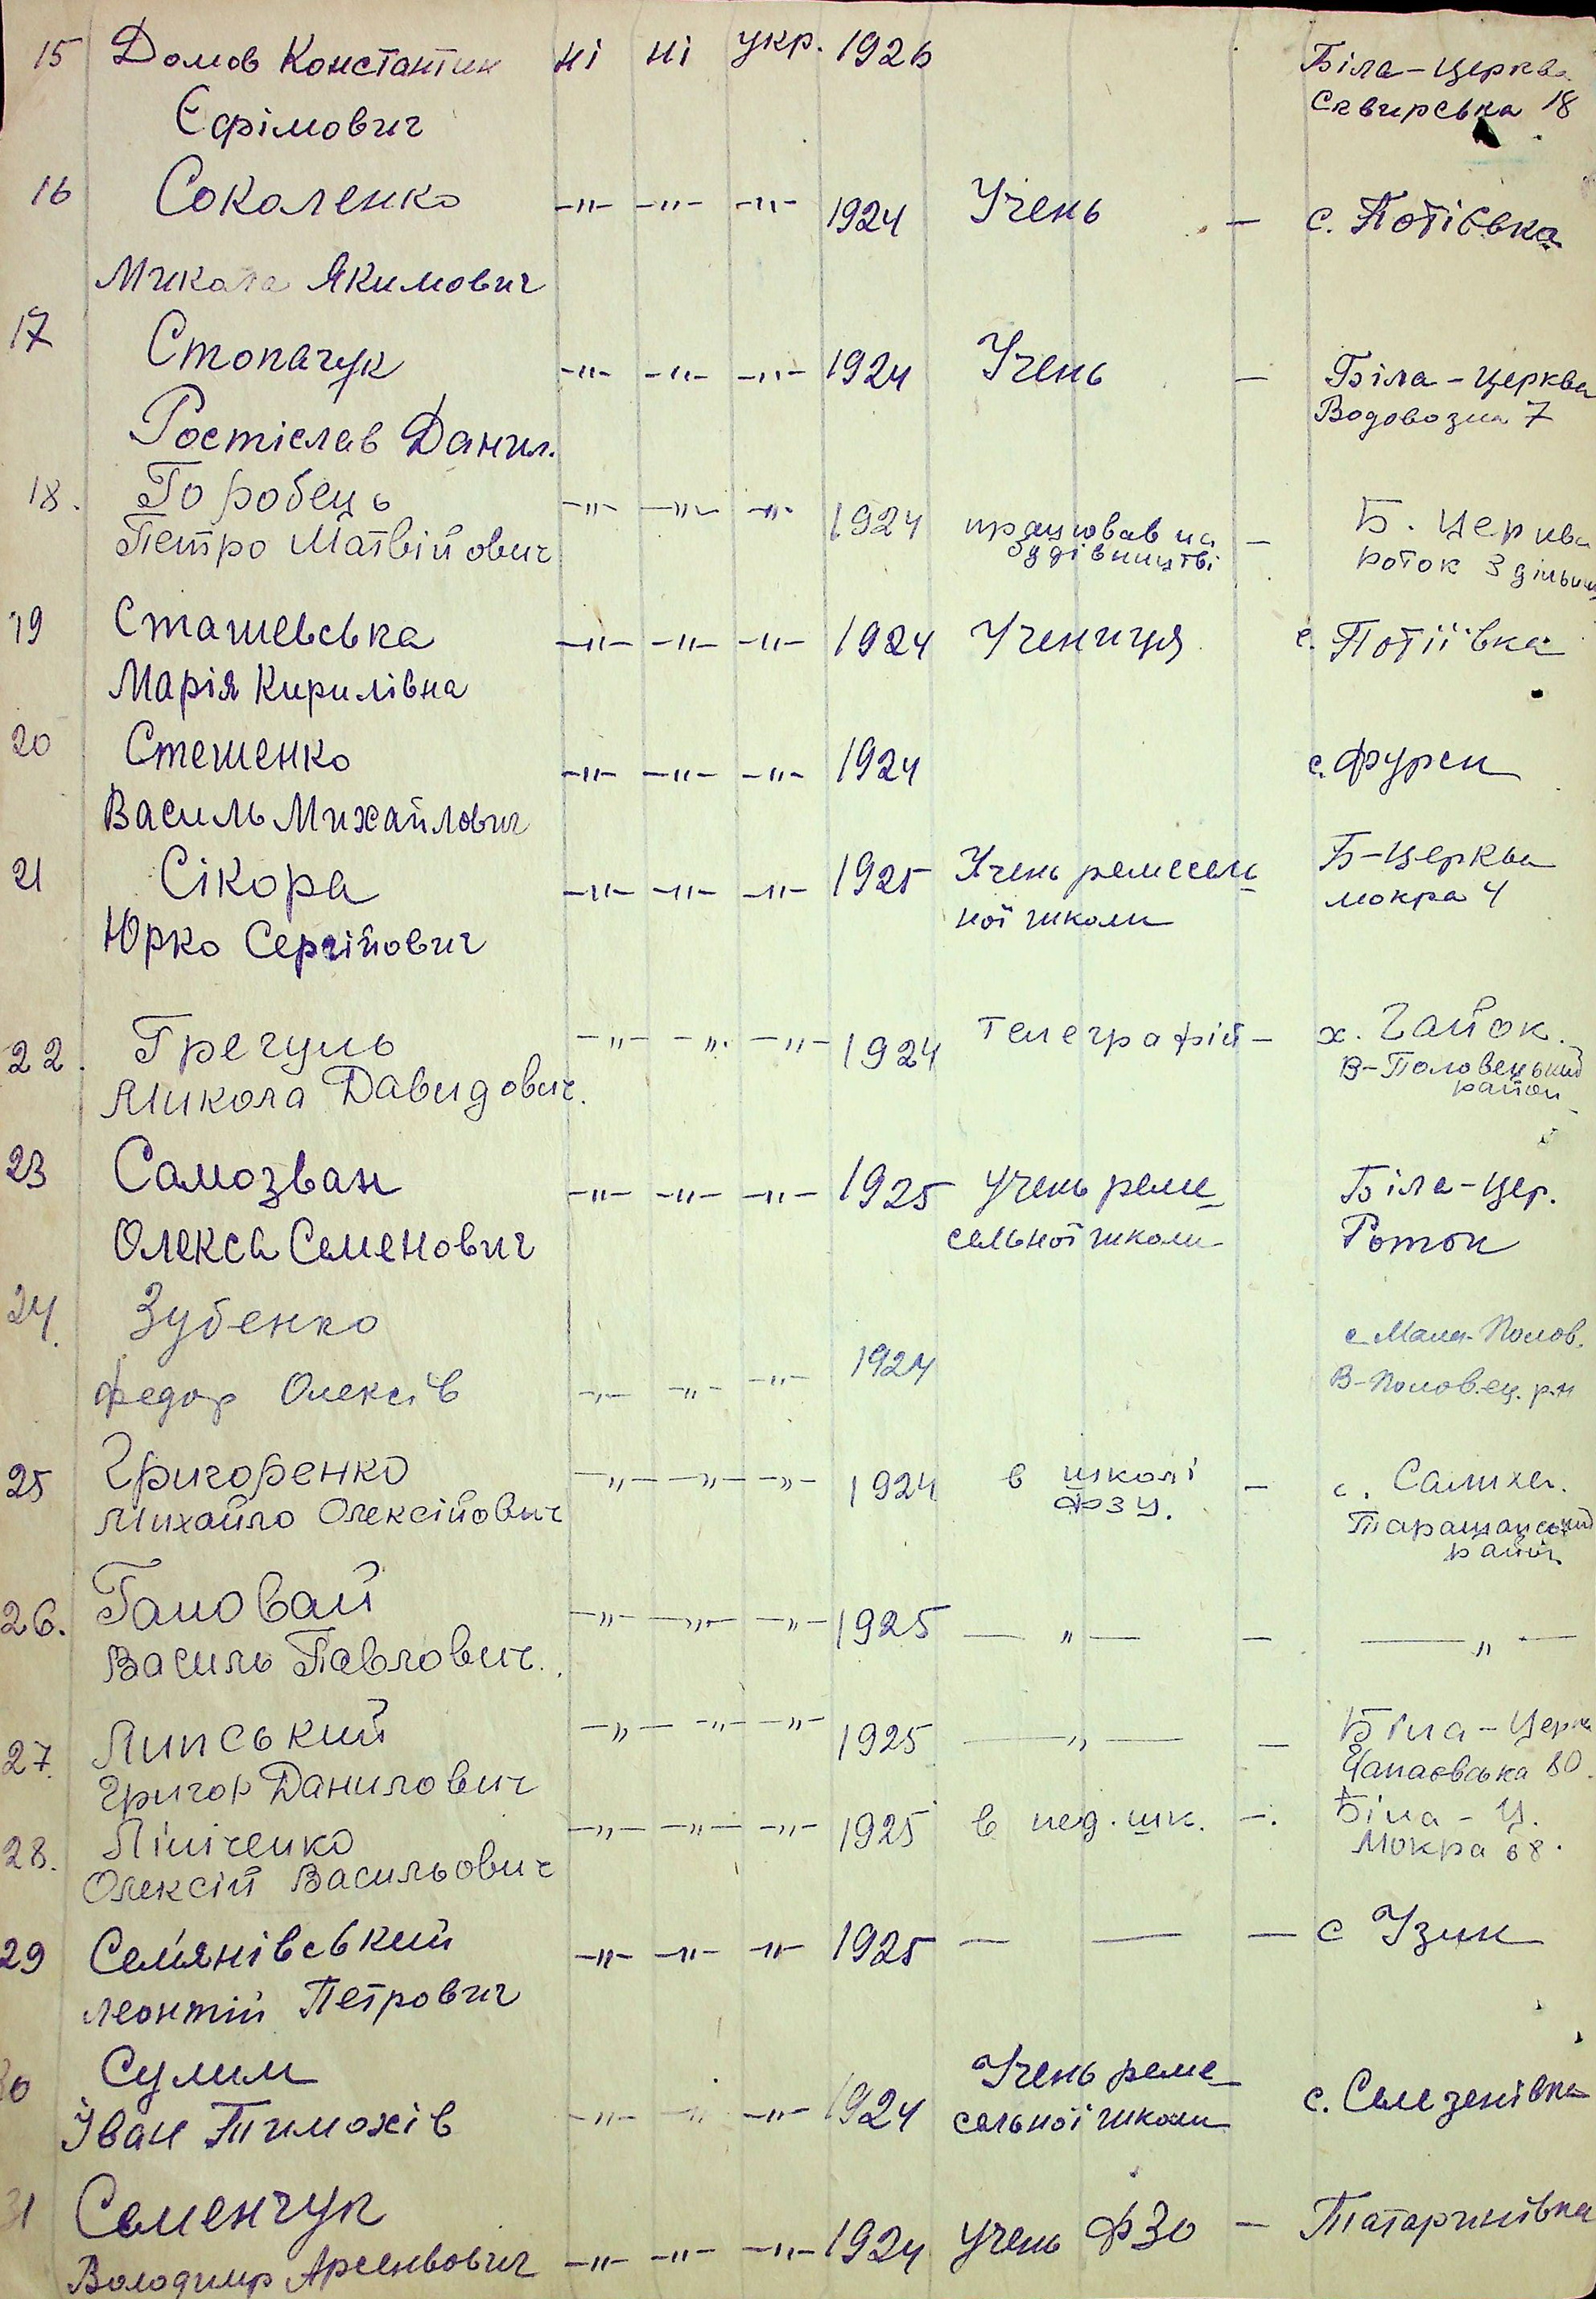 15 Домов Константин ні ні укр. 1926 Біла-Церква
Єфімович Сквирська 18
16 Соколенко -"- -"- -"- 1924 Учень - с. Потіївка
Микола Якимович
17 Стопачук -"- -"- -"- 1924 Учень - Біла-Церква
Ростіслав Данил. Водовозна 7
18. Горобець -"- -"- -"- 1924 працював на - Б. Церква
Петро Матвійович будівництві Роток 3 дільниц
19 Сташевська -"- -"- -"- 1924 Учениця с. Потіївка
Марія Кирилівна
20 Стешенко -"- -"- -"- 1924 с. Фурси
Василь Михайлович
21 Сікора -"- -"- -"- 1925 Учень ремесель Б-Церква
Юрко Сергійович ної школи мокра 4
22. Гречуль -"- -"- -"- 1924 Телеграфій - х. Гайок.
Микола Давидович. В-Половецький
район
23 Самозван -"- -"- -"- 1925 Учень реме Біла-Цер.
Олекса Семенович сельної школи Роток
24. Зубенко с Мала-Полов.
Федор Олексів -"- -"- -"- 1924 В-Половец. р-н
25 Григоренко -"- -"- -"- 1924 в школі - с. Салиха.
Михайло Олексійович ФЗУ. Таращанський
район
26. Гановай -"- -"- -"- 1925 -"- - -"-
Василь Павлович.
27. Липський -"- -"- -"- 1925 -"- - Біла-Церк
Григор Данилович Чапаєвська 80.
28. Лініченко -"- -"- -"- 1925 в пед. шк. -. Біла-Ц.
Олексій Васильович Мокра 68.
29 Сем'янівський -"- -"- -"- 1925 - - - с Узин
Леонтій Петрович
30 Сулим Учень реме
Іван Тимохів -"- -"- -"- 1924 сельної школи с. Селезенівка
31 Семенчук
Володимир Арсенвович -"- -"- -"- 1924 учень ФЗО - Татаринівка